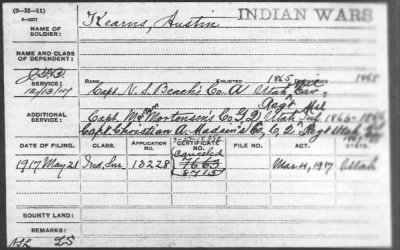 (3-H-11)
INDIAN WARS
NAME OF SOLDIER:
Kearns, Austin
NAME AND CLASS OF DEPENDENT:
RANK ENLISTED
SERVICE:
12/13/47
Capt. N. S. Beach's Co. A Utah Cav. 1865 1865
ADDITIONAL SERVICE:
Capt. Mortonson's Co. Utah Inf. 1866-
Capt. Christian A. Madsen's Co. C, 2" Regt Utah
DATE OF FILING. CLASS. APPLICATION NO. CERTIFICATE NO. FILE NO. ACT. STATE
1917 May 21 Ind. Sur. 13228 canceled 7663 Mar. 4, 1917 Utah
8715
COUNTY LAND:
REMARKS: